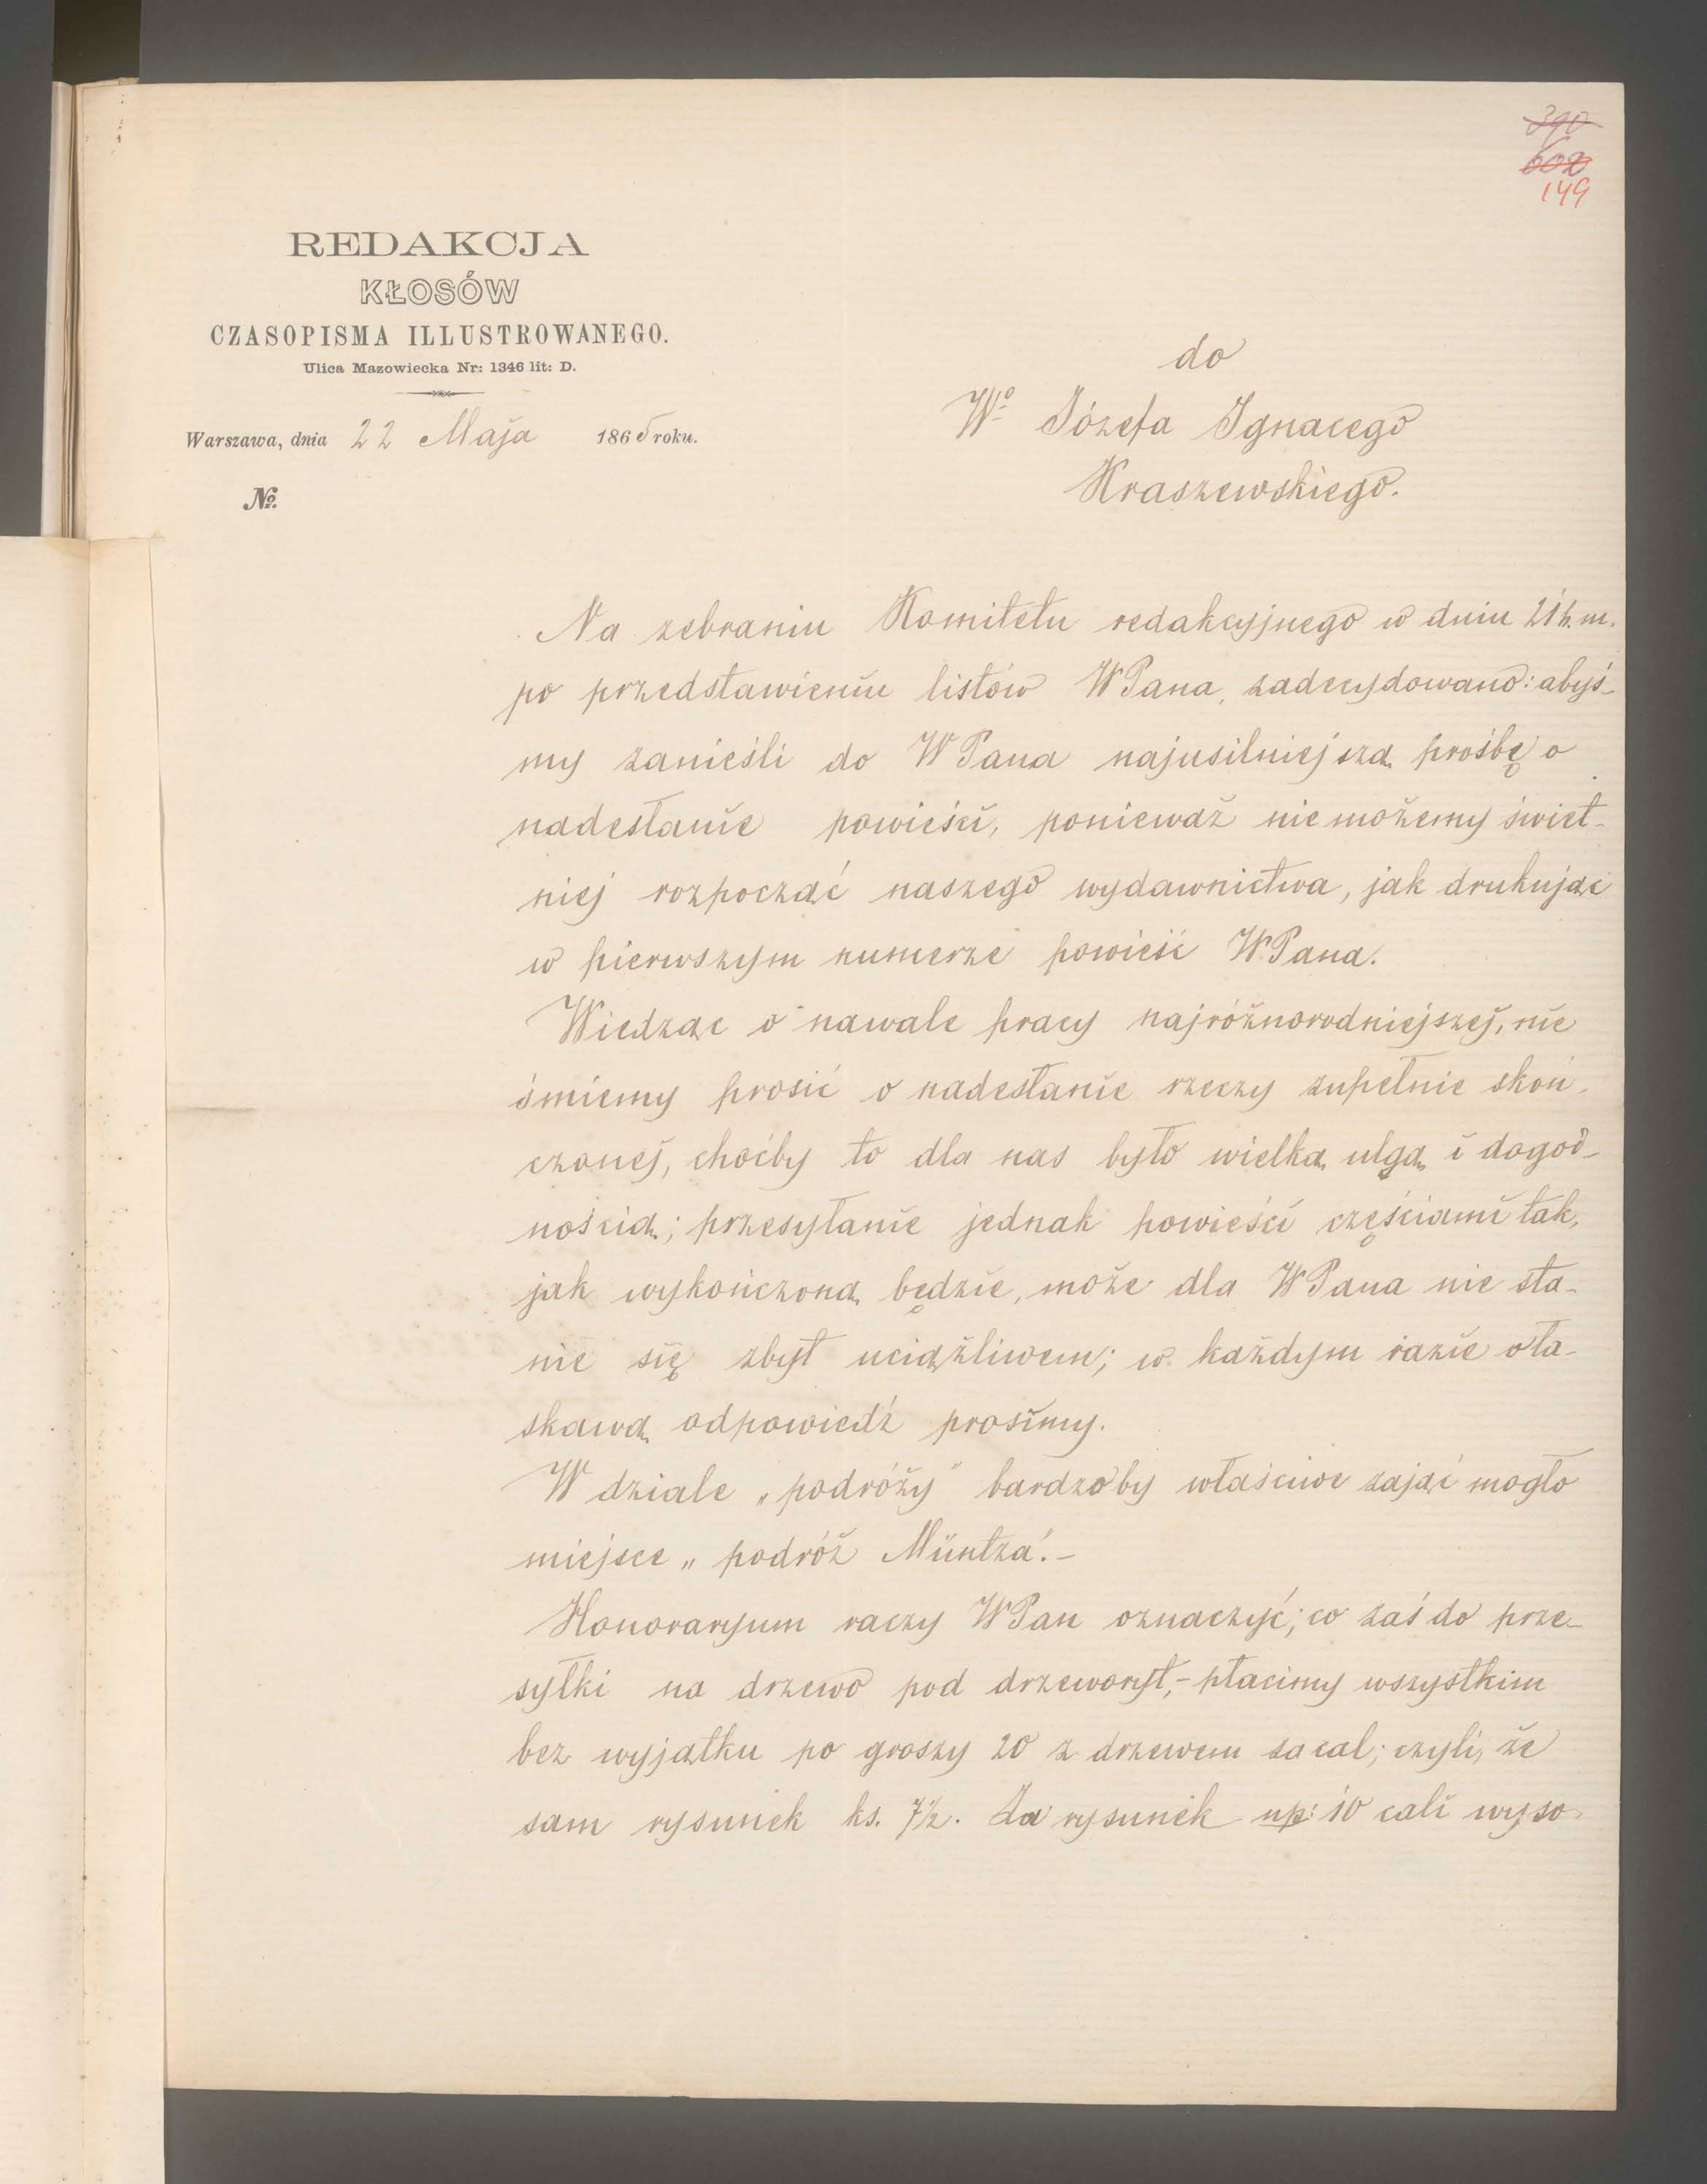 390
602
149
REDAKCJA
KŁOSÓW
CZASOPISMA ILLUSTROWANEGO.
Ulica Mazowiecka Nr: 1346 lit: D.
Warszawa, dnia 22 Maja 1865 roku.
№.
do
Wº Józefa Ignacego
Kraszewskiego.
Na zebraniu Komitetu redakcyjnego w dniu 21 b. m.
po przedstawieniu listów WPana, zadecydowano: abyś-
my zanieśli do WPana najusilniejszą prośbę o
nadesłanie powieści, ponieważ nie możemy świet-
niej rozpocząć naszego wydawnictwa, jak drukując
w pierwszym numerze powieść WPana.
Wiedząc o nawale pracy najróżnorodniejszej, nie
śmiemy prosić o nadesłanie rzeczy zupełnie skoń-
czonej, choćby to dla nas było wielką ulgą i dogod-
nością; przesyłanie jednak powieści częściami tak,
jak wykończoną będzie, może dla WPana nie sta-
nie się zbyt uciążliwem; w każdym razie o ła-
skawą odpowiedź prosimy.
W dziale „podróży" bardzoby właściwe zająć mogło
miejsce „podróż Müntza".-
Honoraryum raczy WPan oznaczyć; co zaś do prze-
syłki na drzewo pod drzeworyt,- płacimy wszystkim
bez wyjątku po groszy 20 z drzewem za cal; czyli, że
sam rysunek ks. 7½. Za rysunek np: 10 cali wyso-